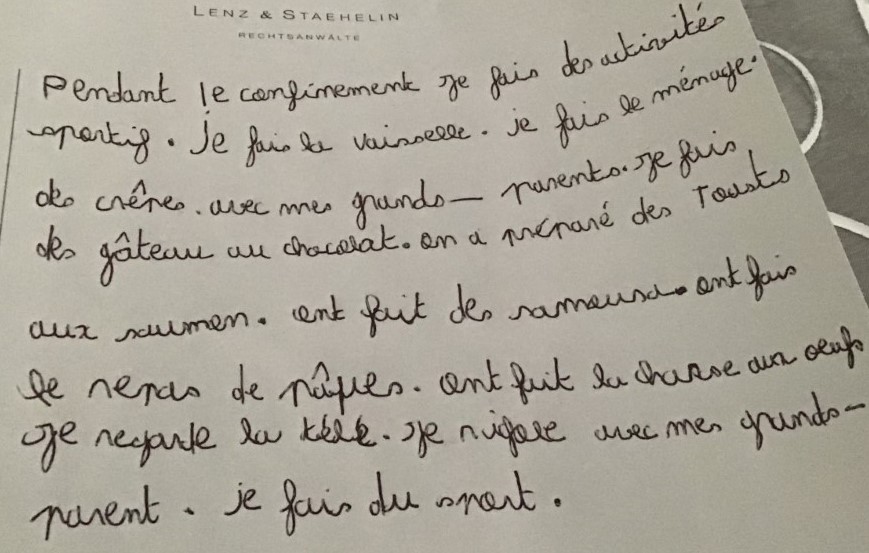 LENZ & STAEHELIN
RECHTSANWÄLTE
Pendant le confinement je fais des activités
sportif. je fais la vaisselle. je fais le ménage.
des crêpes. avec mes grands- parents. je fais
des gâteau au chocolat. on a préparé des Tousts
aux saumon. ont fait des samousa. ont fais
le repas de pâques. ont fait la chasse aux oeufs
je regarde la télé. je rigole avec mes grands-
parent. je fais du sport.